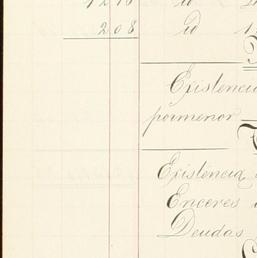 id
2 0 8 id 1
Existencia
pormenor
Existencia
Enceres
Deudas